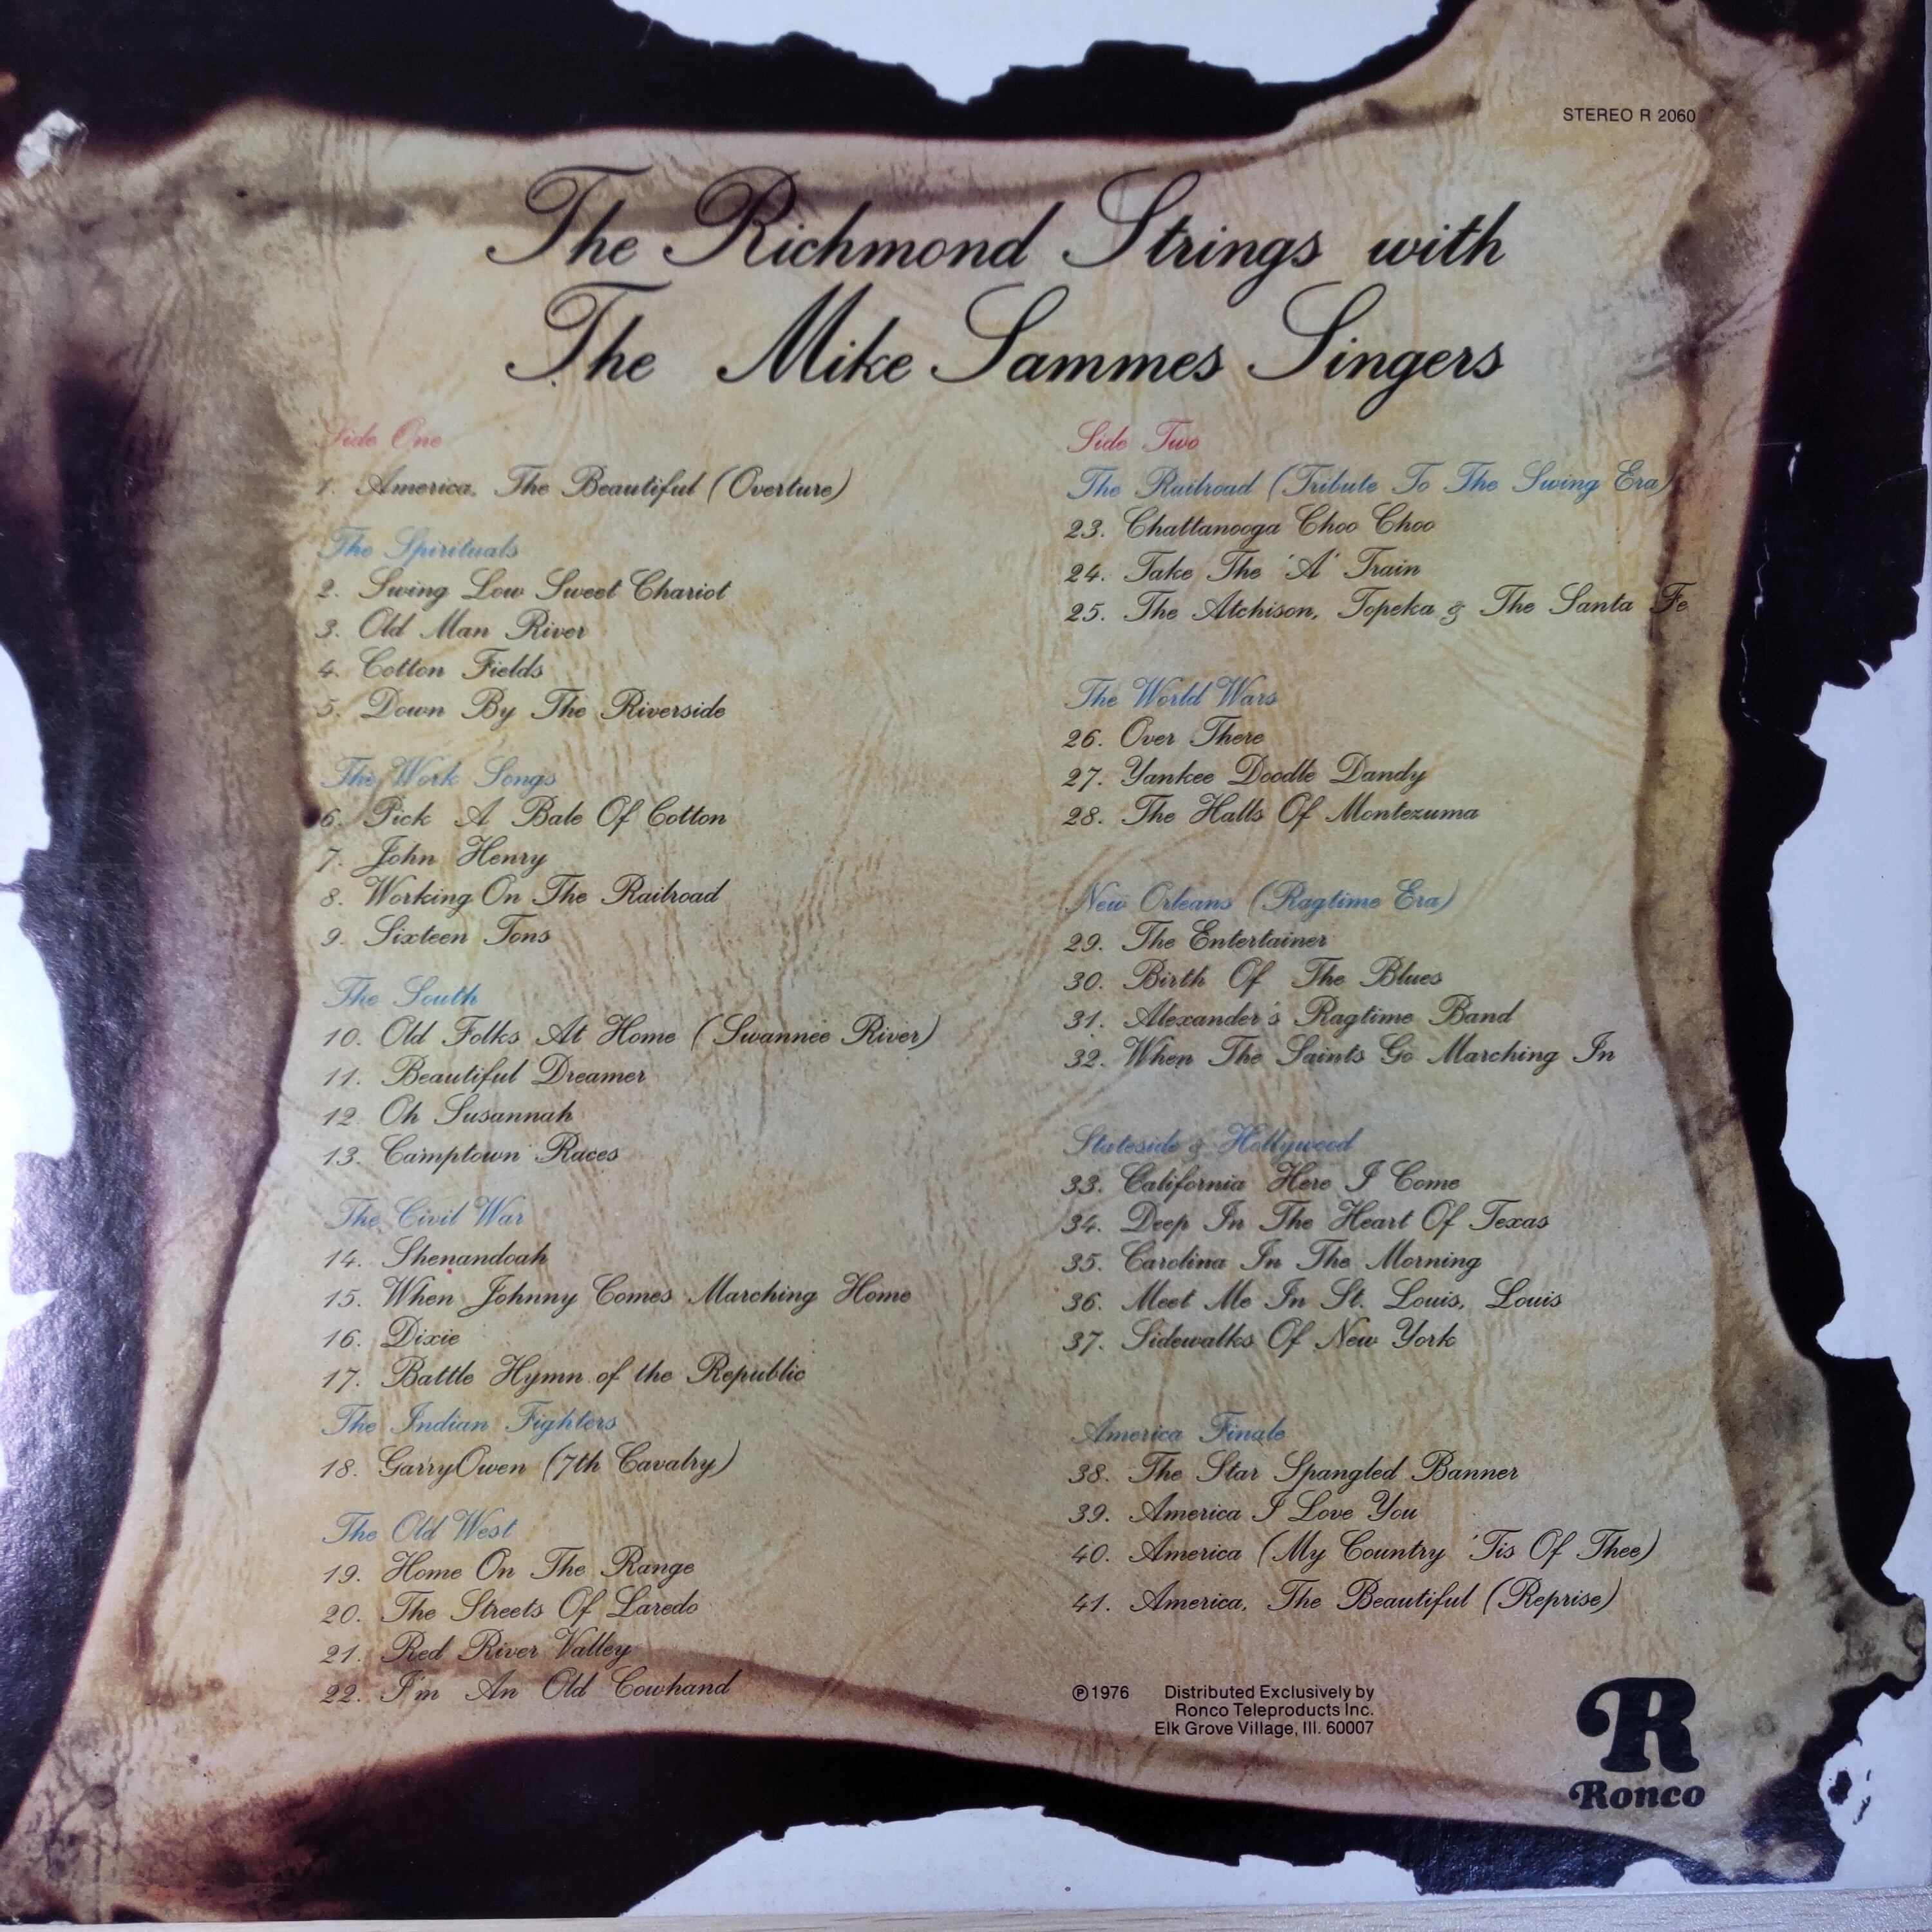 STEREO R 2060
The Richmond Strings with
The Mike Sammes Singers
Side One
1. America, The Beautiful (Overture)
The Spirituals
2. Swing Low Sweet Chariot
3. Old Man River
4. Cotton Fields
5. Down By The Riverside
The Work Songs
6. Pick A Bale Of Cotton
7. John Henry
8. Working On The Railroad
9. Sixteen Tons
The South
10. Old Folks At Home (Swannee River)
11. Beautiful Dreamer
12. Oh Susannah
13. Camptown Races
The Civil War
14. Shenandoah
15. When Johnny Comes Marching Home
16. Dixie
17. Battle Hymn of the Republic
The Indian Fighters
18. GarryOwen (7th Cavalry)
The Old West
19. Home On The Range
20. The Streets Of Laredo
21. Red River Valley
22. I'm An Old Cowhand
Side Two
The Railroad (Tribute To The Swing Era)
23. Chattanooga Choo Choo
24. Take The 'A' Train
25. The Atchison, Topeka & The Santa Fe
The World Wars
26. Over There
27. Yankee Doodle Dandy
28. The Halls Of Montezuma
New Orleans (Ragtime Era)
29. The Entertainer
30. Birth Of The Blues
31. Alexander's Ragtime Band
32. When The Saints Go Marching In
Stateside & Hollywood
33. California Here I Come
34. Deep In The Heart Of Texas
35. Carolina In The Morning
36. Meet Me In St. Louis, Louis
37. Sidewalks Of New York
America Finale
38. The Star Spangled Banner
39. America I Love You
40. America (My Country 'Tis Of Thee)
41. America, The Beautiful (Reprise)
℗1976 Distributed Exclusively by
Ronco Teleproducts Inc.
Elk Grove Village, Ill. 60007
R
Ronco